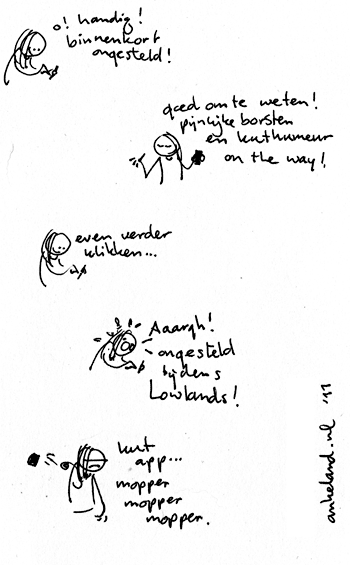 o! handig!
binnenkort
ongesteld!
goed om te weten!
pijnlijke borsten
en kuthumeur
on the way!
even verder
klikken...
Aaargh!
ongesteld
tijdens
Lowlands!
kut
app...
mopper
mopper
mopper.
ankeland.nl '11